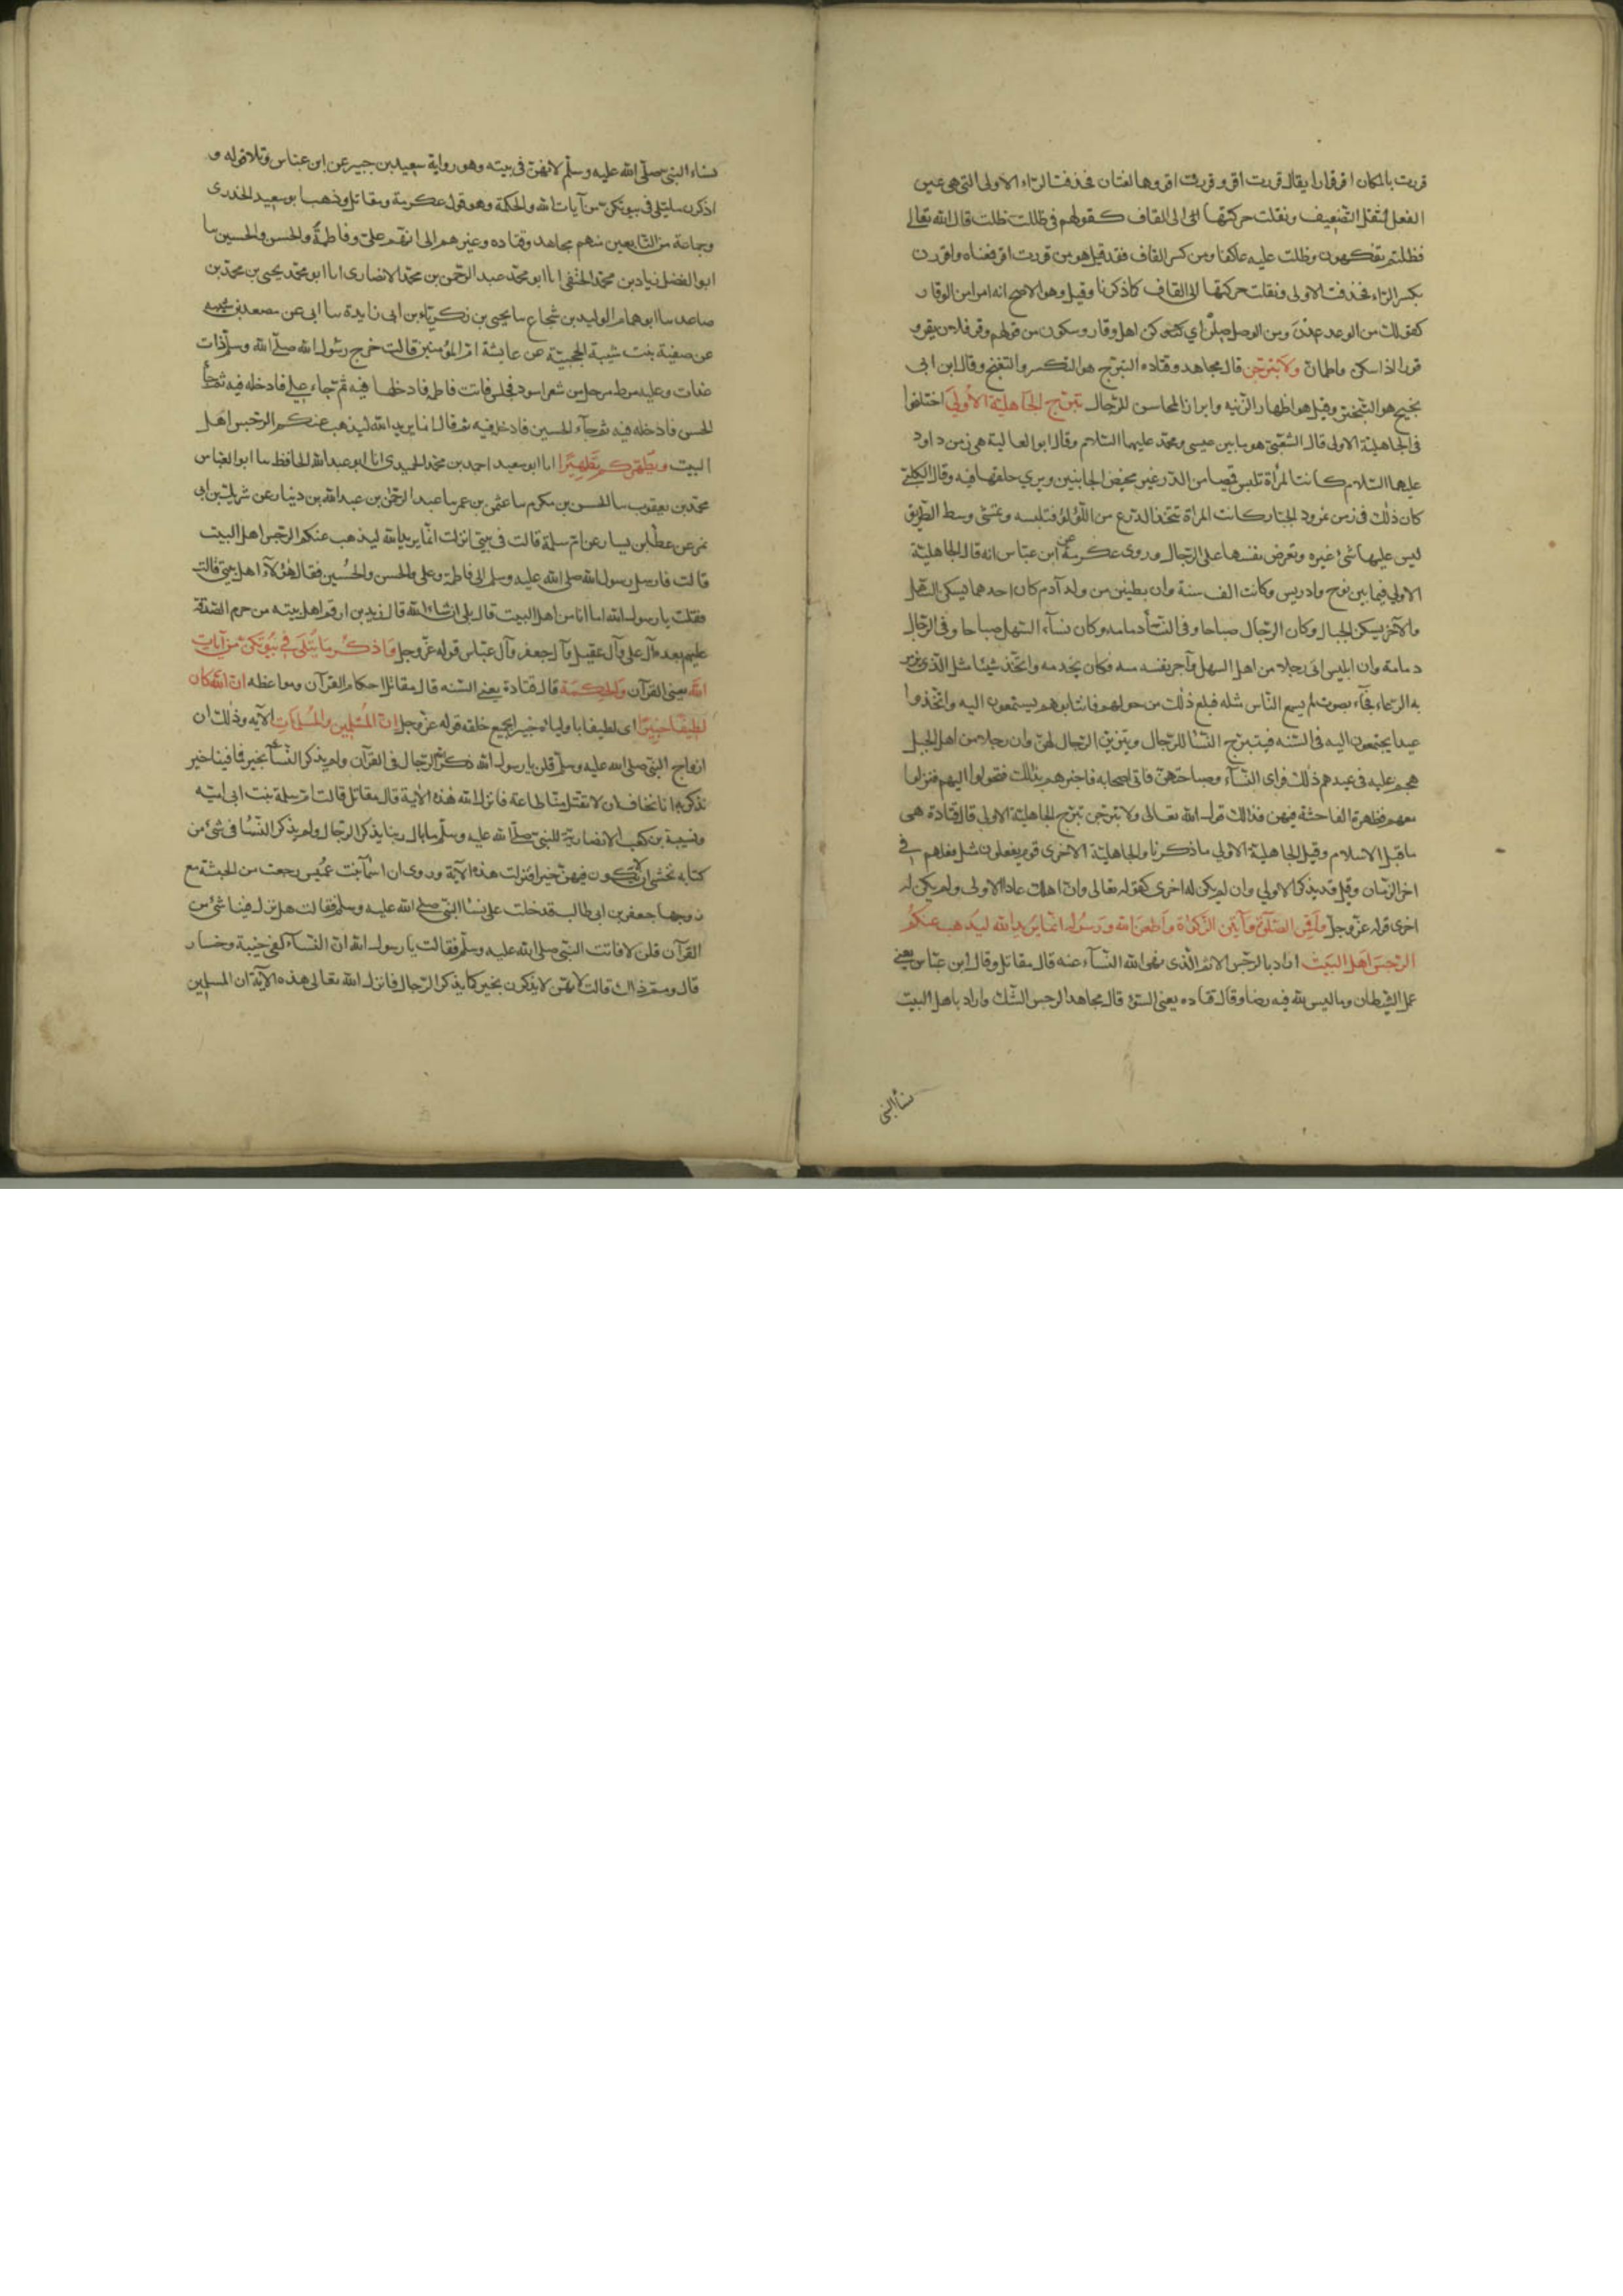 قررت بالمكان اقر قرارا يقال قررت اقر وقررت اقر وهما لغتان فحذفت الراء الاولى التي هي عين
الفعل لثقل التضعيف ونقلت حركتها الى القاف كقولهم في ظللت ظلت قال الله تعالى
فظلتم تفكهون وظلت عليه عاكفا ومن كسر القاف فقد قيل هو من قررت اقر فمعناه واقررن
بكسر الراء فحذفت الاولى ونقلت حركتها الى القاف كما ذكرنا وقيل وهو الاصح انه امر من الوقار
كقولك من الوعد عدن ومن الوصل صلن اي كن اهل وقار وسكون من قولهم وقر فلان يقر
وقورا اذا سكن واطمان ولا تبرجن قال مجاهد وقتاده التبرج هو التكسر والتغنج وقال ابن ابي
نجيح هو التبختر وقيل هو اظهار الزينه وابراز المحاسن للرجال تبرج الجاهلية الاولى اختلفوا
في الجاهلية الاولى قال الشعبي هو ما بين عيسى ومحمد عليهما السلام وقال ابو العالية هي زمن داود
عليهما السلام كانت المرأة تلبس قميصا من الدر غير مخيط الجانبين ويرى خلقها فيه وقال الكلبي
كان ذلك في زمن نمرود الجبار كانت المراة تتخذ الدرع من اللؤلؤ فتلبسه وتمشي وسط الطريق
ليس عليها شئ غيره وتعرض نفسها على الرجال وروى عكرمة عن ابن عباس انه قال الجاهلية
الاولى فيما بين نوح وادريس وكانت الف سنة وان بطنين من ولد آدم كان احدهما يسكن السهل
والآخر يسكن الجبال وكان الرجال صباحا وفي النسأ دمامه وكان نسآء السهل صباحا وفي الرجال
دمامة وان ابليس اتى رجلا من اهل السهل وآجر نفسه منه فكان يخدمه واتخذ شيئا مثل الذي يزمر
به الرعاء فجآء بصوت لم يسمع الناس مثله فبلغ ذلك من حولهم فانتابوهم يستمعون اليه واتخذوا
عيدا يجتمعون اليه في السنه فيتبرج النسا للرجال ويتزين الرجال لهن وان رجلا من اهل الجبل
هجم عليه في عيدهم ذلك فراى النسآء وصباحتهن فاتى اصحابه فاخبرهم بذلك فتحولوا اليهم فنزلوا
معهم فظهرة الفاحشة فيهن فذالك قول الله تعالى ولا تبرجن تبرج الجاهلية الاولى قال قتادة هي
ما قبل الاسلام وقيل الجاهلية الاولى ما ذكرنا والجاهلية الاخرى قوم يفعلون مثل فعلهم في
اخر الزمان وقيل قد يذكر الاولى وان لم يكن له اخرى كقوله تعالى وانه اهلك عادا الاولى ولم يكن له
اخرى قوله عز وجل واقمن الصلوة وآتين الزكوة واطعن الله ورسوله انما يريد الله ليذهب عنكم
الرجس اهل البيت اراد بالرجس الاثم الذي نهى الله النسآء عنه قال مقاتل وقال ابن عباس يعني
عمل الشيطان وما ليس لله فيه رضا وقال قتاده يعني السوء قال مجاهد الرجس الشك واراد باهل البيت
نسأ النبي
نساء النبي صلى الله عليه وسلم لانهن في بيته وهو رواية سعيد بن جبير عن ابن عباس وتلا قوله و
اذكرن ما يتلى في بيوتكن من آيات الله والحكمة وهو قول عكرمة ومقاتل وذهب ابو سعيد الخدري
وجماعة من التابعين منهم مجاهد وقتاده وغيرهم الى انهم علي وفاطمة والحسن والحسين سا
ابو الفضل زياد بن محمد الحنفي انا ابو محمد عبد الرحمن بن محمد الانصاري انا ابو محمد يحيى بن محمد بن
صاعد سا ابو همام الوليد بن شجاع سا يحيى بن زكرياء بن ابي زايدة سا ابي عن مصعب بن شيبه
عن صفية بنت شيبة الحجبية عن عايشة ام المؤمنين قالت خرج رسول الله صلى الله وسلم ذات
غدات وعليه مرط مرحل من شعر اسود فجلس فاتت فاطمه فادخلها فيه ثم جاء علي فادخله فيه ثم جأ
الحسن فادخله فيه ثم جآء الحسين فادخله فيه ثم قال انما يريد الله ليذهب عنكم الرجس اهل
البيت ويطهركم تطهيرا انا ابو سعيد احمد بن محمد الحميدي انا ابو عبد الله الحافظ سا ابو العباس
محمد بن يعقوب سا الحسن بن مكرم سا عثمن بن عمر سا عبد الرحمن بن عبد الله بن دينار عن شريك بن ابي
نمر عن عطا بن يسار عن ام سلمة قالت في بيتي انزلت انما يريد الله ليذهب عنكم الرجس اهل البيت
قالت فارسل رسول الله صلى الله عليه وسلم الى فاطمة وعلي والحسن والحسين فقال هؤلآء اهل بيتي قالت
فقلت يا رسول الله اما انا من اهل البيت قال بلى ان شاء الله قال زيد بن ارقم اهل بيته من حرم الصدقة
عليهم بعده آل علي وآل عقيل وآل جعفر وآل عباس قوله عز وجل واذكرن ما يتلى في بيوتكن من آيات
الله يعني القرآن والحكمة قال قتادة يعني السنه قال مقاتل احكام القرآن ومواعظه ان الله كان
لطيفا خبيرا اي لطيفا باوليائه خبيرا بجميع خلقه قوله عز وجل ان المسلمين والمسلمات الآيه وذلك ان
ازواج النبي صلى الله عليه وسلم قلن يا رسول الله ذكر الله الرجال في القرآن ولم يذكر النسأ بخير فما فينا خير
نذكر به انا نخاف ان لا تقبل منا طاعة فانزل الله هذه الآية قال مقاتل قالت ام سلمة بنت ابي اميه
ونسيبة بن كعب الانصارية للنبي صلى الله عليه وسلم ما بال ربنا يذكر الرجال ولم يذكر النسا في شئ من
كتابه نخشى ان لا يكون فيهن خير فنزلت هذه الآية وروى ان اسمآ بنت عميس رجعت من الحبشة مع
زوجها جعفر بن ابي طالب فدخلت على نسا النبي صلى الله عليه وسلم فقالت هل نزل فينا شئ من
القرآن قلن لا فاتت النبي صلى الله عليه وسلم فقالت يا رسول الله ان النسآء لفي خيبة وخسار
قال ومم ذاك قالت لانهن لا يذكرن بخير كما يذكر الرجال فانزل الله تعالى هذه الآية ان المسلمين